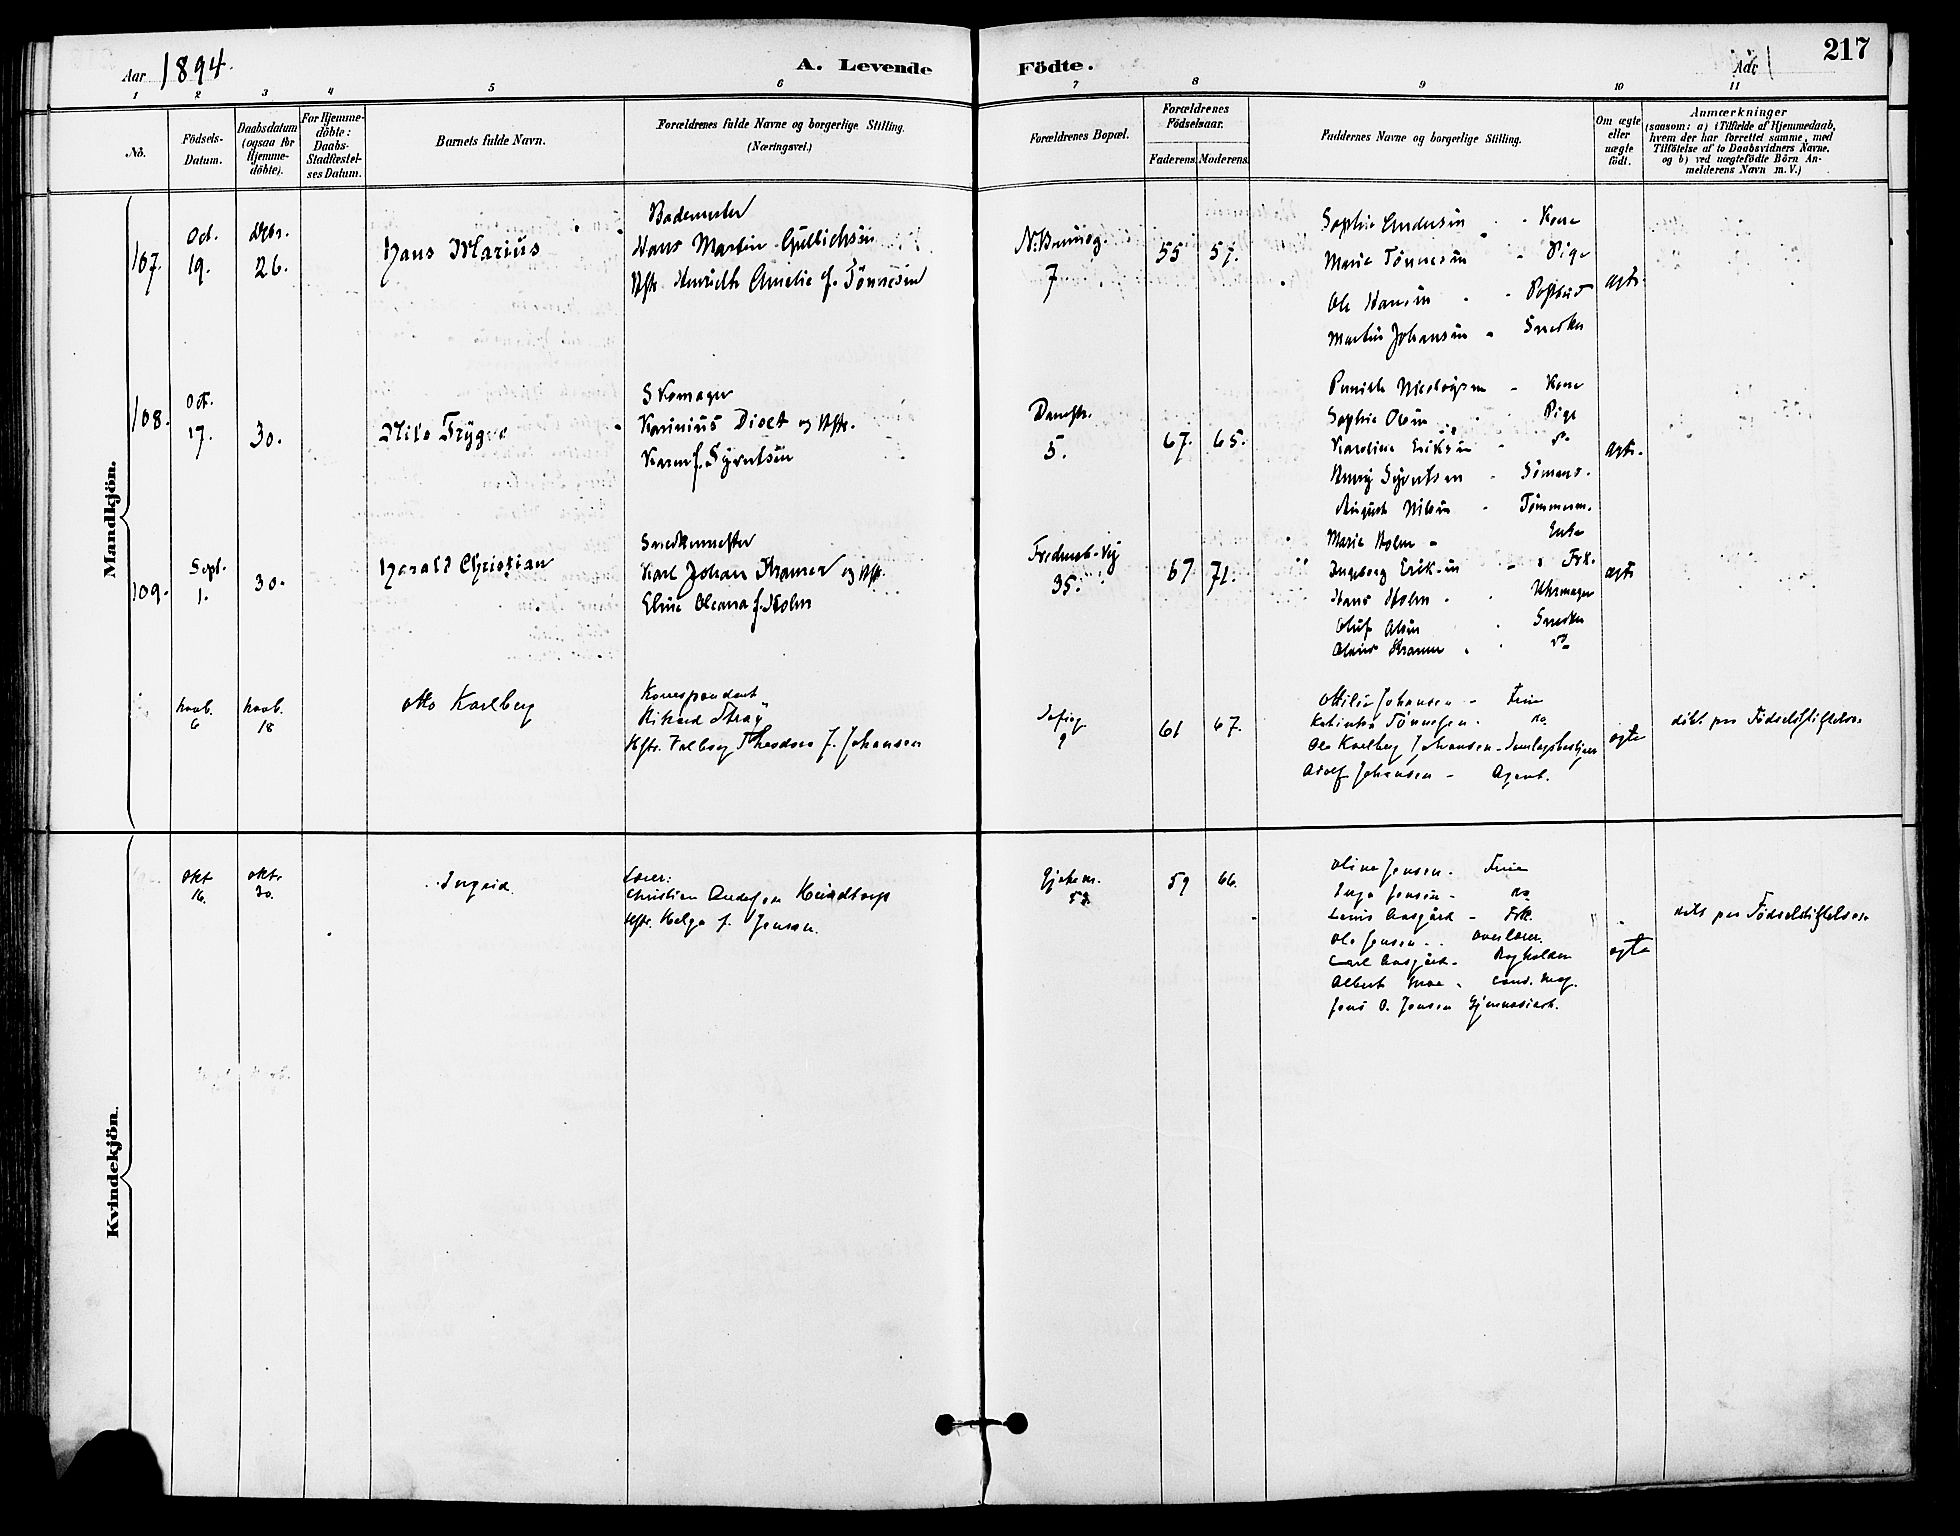 Aar 1894.
A. Levende
Födte.
Aar
217
1 2 3 4 5 6 7 8 9 10 11
No.
Födsels-Datum.
Daabsdatum (ogsaa for Hjemme-döbte).
For Hjemme-döbte: Daabs-Stadfæstel-ses Datum.
Barnets fulde Navn.
Forældrenes fulde Navne og borgerlige Stilling. (Næringsvei.)
Forældrenes Bopæl.
Forældrenes Födselsaar.
Faderens. Moderens.
Faddernes Navne og borgerlige Stilling.
Om ægte eller uægte födt.
Anmærkninger
(saasom: a) i Tilfælde af Hjemmedaab, hvem der har forrettet samme, med Tilföielse af to Daabsvidners Navne. og b) ved uægtefödte Börn An-melderens Navn m. V.)
Mandkjön.
107.
Oct. 19.
26.
Hans Marius
Bademester
Hans Martin Gullichsen
Hstr. Amelie f. Tønnesen
7
55 57.
Sophie Andersen - Kone
Marie Tønnesen - Pige
Ole Hansen - Postbud
Martin Johansen - Snedker
ægte.
108.
Oct. 17.
30.
Nils Trygve
Skomager
Karinius og Hstr.
Karen f. Syvertsen
5.
67. 65.
Pernille Nicolaysen - Kone
Sophie Olsen - Pige
Karoline Eriksen - do
Henry Syvertsen - Sømand.
August Nilsen - Tømmerm.
ægte.
109.
Sept. 1.
30.
Harald Christian
Snedkermester
Karl Johan Kramer og Hstr.
Eline Oleana f. Holm
35.
67 71.
Marie Holm - Enke
Ingeborg Eriksen - Frk.
Hans Holm - Uhrmager
Oluf Olsen - Snedker
Olaus Kramer - do
ægte
Novb. 6
Novb. 18
Otto Karlberg
Korrespondent
Rikard Strøy
Hstr. Valborg Theodora f. Johansen
Sofieg. 9
61 67.
Ottilie Johansen - Frue
Katinka Tønnesen - do
Ole Karlberg Johansen - Jernlagsbestyrer
Adolf Johansen - Agent.
ægte
døbt paa Fødselsstiftelsen
Kvindekjön.
Okt 16.
Okt. 20.
Ingrid.
Lærer:
Christian Andersen
Hstr. Helga f. Jensen.
59 66.
Olive Jensen. Frue
Inga Jensen - do
Aasgård - Frk.
Ole Jensen - Overlærer.
Carl Aasgård - Bogholder
Albert Moe - Cand. Mag.
Jens O. Jensen Gymnasiast.
ægte
døbt paa Fødselsstiftelsen